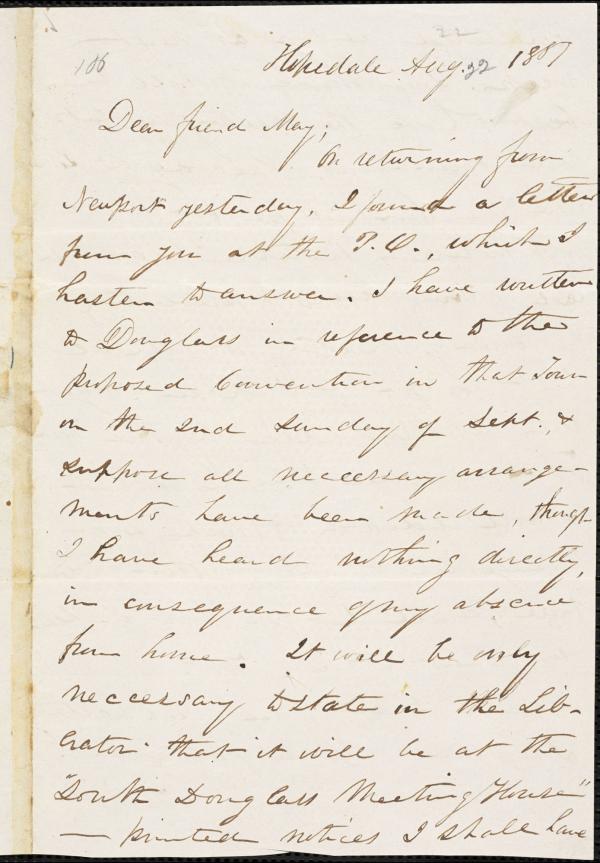 22
186
Hopedale Aug. 22 1857
Dear friend May;
On returning from
Newport yesterday, I found a letter
from you at the P.O., which I
hasten to answer. I have written
to Douglass in reference to the
proposed Convention in that Town
on the 2nd Sunday of Sept., &
suppose all neccessary arrange-
ments have been made, though
I have heard nothing directly,
in consequence of my absence
from home. It will be only
neccessary to state in the Lib-
erator that it will be at the
"South Douglass Meeting House"
— Printed notices I shall have